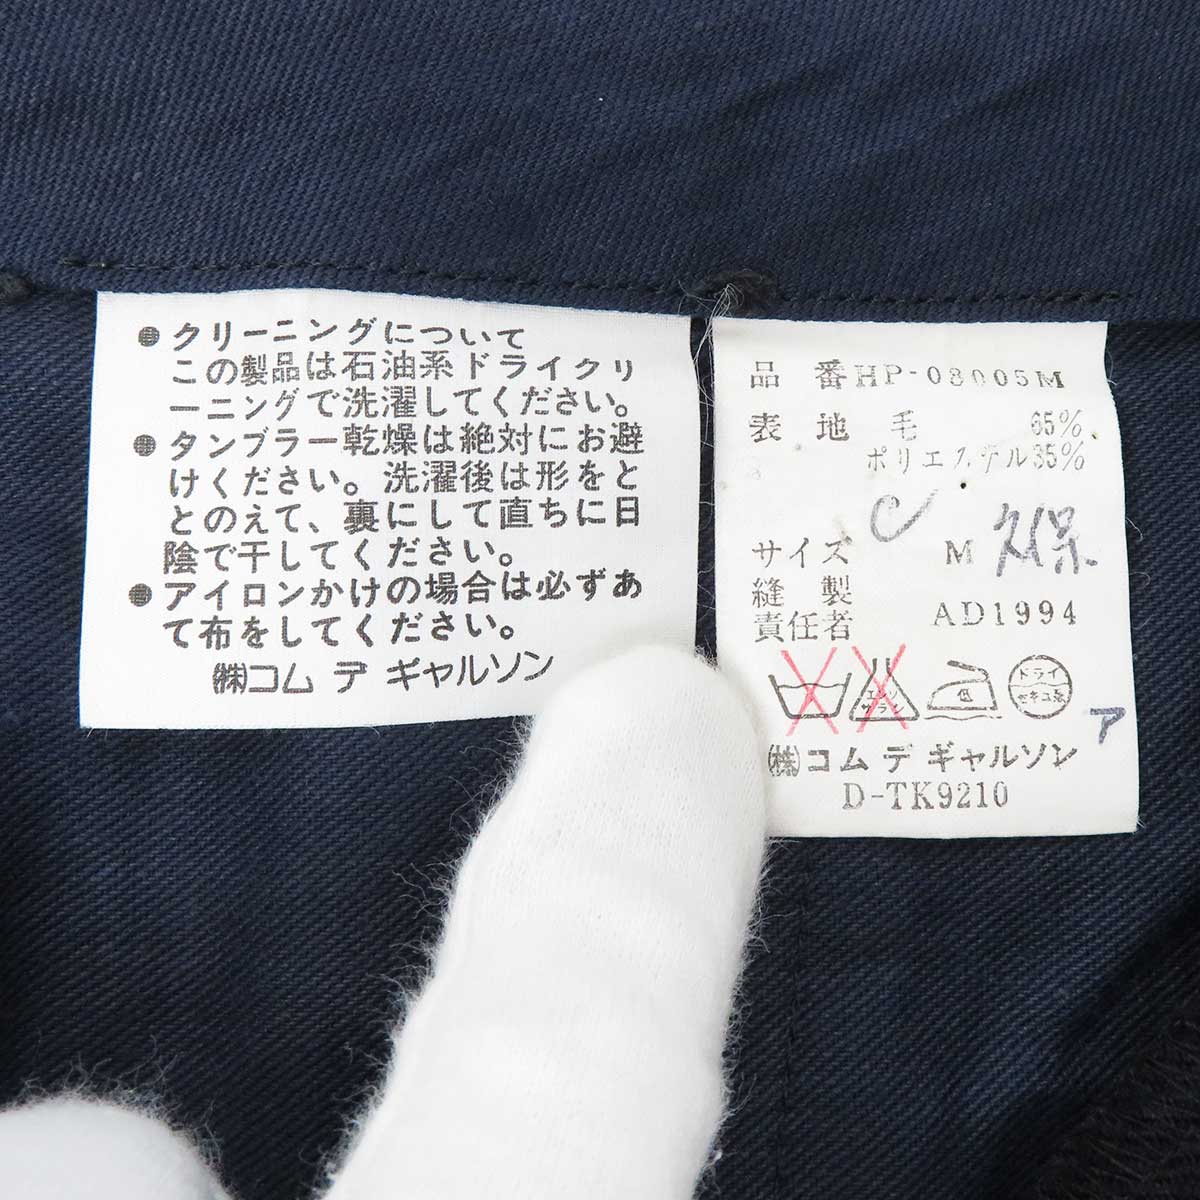 ● クリーニングについて
この製品は石油系ドライクリ
ーニングで洗濯してください。
● タンブラー乾燥は絶対にお避
けください。洗濯後は形をと
とのえて、裏にして直ちに日
陰で干してください。
● アイロンかけの場合は必ずあ
て布をしてください。
㈱コム デ ギャルソン
品 番 HP-08005M
表 地 毛 65%
ポリエステル 35%
サイズ M 久保
縫 製
責任者 AD1994
エンソ
サラシ
低
ドライ
セキユ系
ア
㈱コム デ ギャルソン
D-TK9210